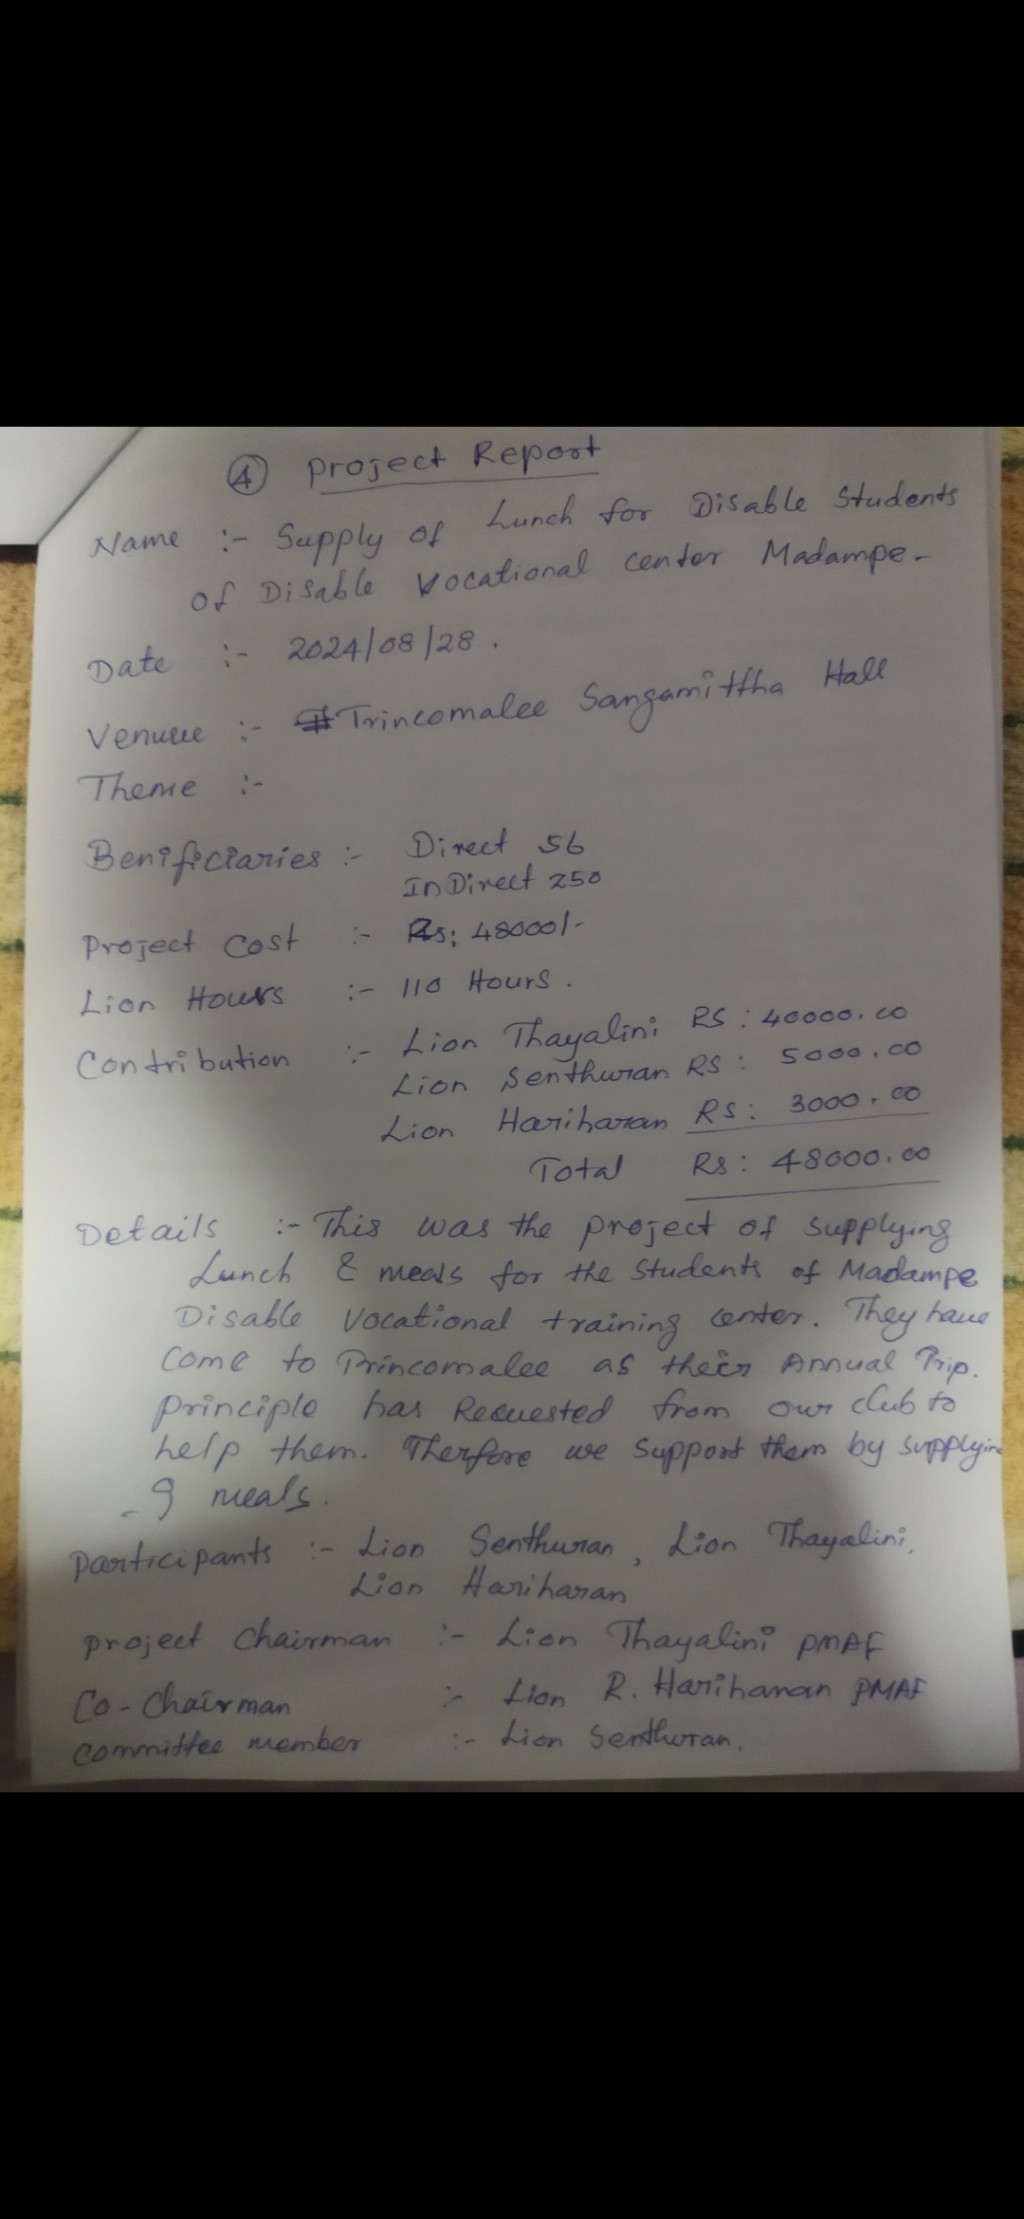 ④ Project Report
Name :- Supply of Lunch for Disable Students
of Disable Vocational center Madampe.
Date :- 2024/08/28.
Venuue :- Trincomalee Sangamittha Hall
Theme :-
Benificiaries :- Direct 56
InDirect 250
Project Cost :- Rs: 48000/-
Lion Hours :- 110 Hours.
Contribution :- Lion Thayalini RS: 40000.00
Lion Senthuran RS: 5000.00
Lion Hariharan Rs: 3000.00
Total Rs: 48000.00
Details :- This was the project of supplying
Lunch & meals for the Students of Madampe
Disable Vocational training center. They have
come to Trincomalee as their Annual Trip.
Principle has Requested from our club to
help them. Therfore we support them by supplyin
- g meals.
Participants :- Lion Senthuran, Lion Thayalini,
Lion Hariharan
Project Chairman :- Lion Thayalini PMAF
Co-Chairman :- Lion R. Hariharan PMAF
Committee member :- Lion Senthuran.